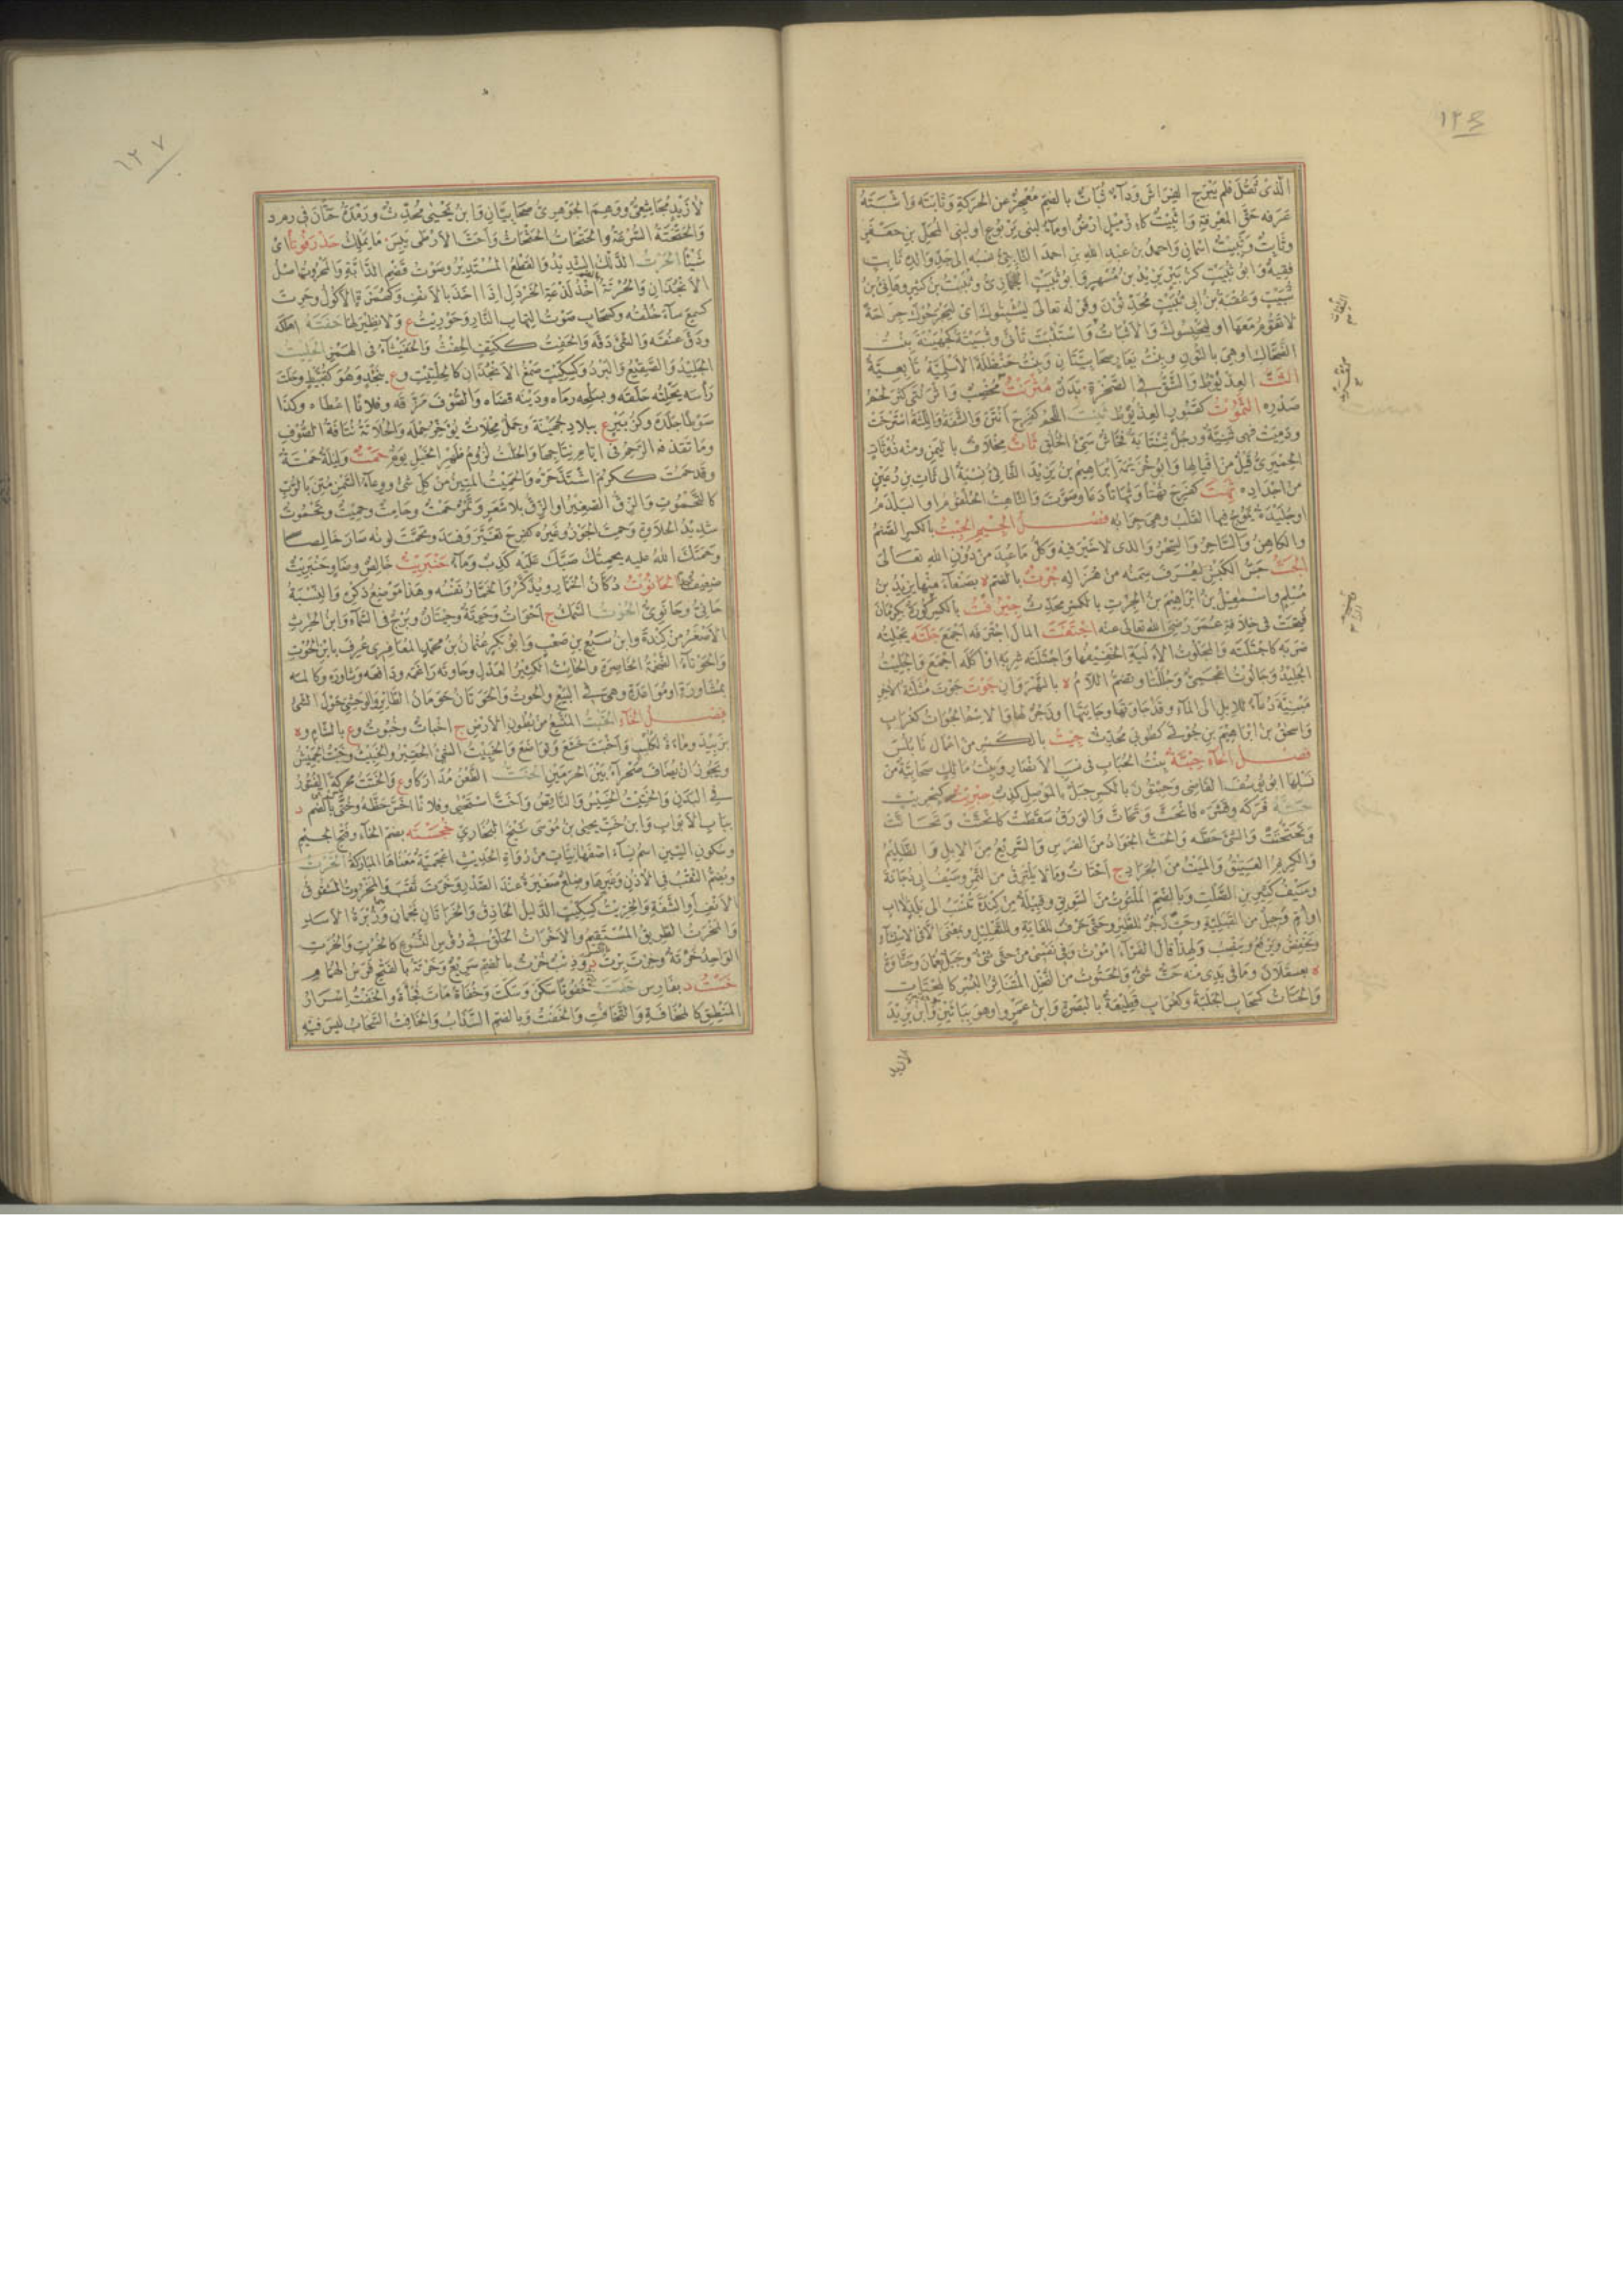 ١٢٦
الّذى ثَقُلَ فلم يَبْرَحِ الفِرَاشَ وَدَآءٌ ثُبَاتٌ بالضم مُعْجِزٌ عن الحَرَكَةِ وَثَابَتَهُ وَاَثْبَتَهُ
عَرَفَه حَقَّ المَعْرِفَةِ وَاِثْبِيْتُ كاِزْمِيْلٍ اَرْضٌ اوماۤءٌ لبنى يَرْبُوعٍ او لبنى المُحِلِّ بن جَعْفَرٍ
وثَابِتٌ وَثُبَيْتٌ اسْمَانِ وَاَحْمَدُ بن عَبْدِ اللّٰهِ بن احمدَ الثَّابِتِىُّ نسْبَه الى جَدِّ وَالِدِه ثَابِتٍ
فَقِيهٌ وَابو ثُبَيْتٍ كزُبَيْرٍ يَزِيْدُ بن مُسْهِرٍ وَابو ثُبَيْتٍ الجُمَّازِىُّ وثُبَيْتُ بن كَثِيْرٍ وهَانِئُ بنُ
ثُبَيْتٍ وَعُقْبَةُ بن اَبِى ثُبَيْتٍ مُحَدِّثُوْنَ وقَوْلُه تعالى لِيُثْبِتُوكَ اَىْ لِيَجْرَحُوكَ جِرَاحَةً
لاتَقُوْمُ مَعَهَا اوِ لِيَحْبِسُوكَ وَالاَثْبَاتُ الثِّقَاتُ وَاسْتَثْبَتَ تَأَنَّى وثُبَيْتَةُ كَجُهَيْنَةَ بِنْتُ
الضَّحَّاكِ اوهِىَ بالنُّونِ وبِنْتُ يَعَارٍ صَحَابِيَّتَانِ وَبِنْتُ حَنْظَلَةَ الاَسْلَمِيَّةُ تَابِعِيَّةٌ
الثَّتُّ العِذْيَوْطُ وَالشَّقُّ فى الصَّخْرَةِ بَدَنٌ مُثْرَنْتٌ مُخْصِبٌ وَاثْرَنْتَى كَثُرَ لَحْمُ
صَدْرِه الثَّمُوْتُ كصَبُورٍ العِذْيَوْطُ ثَنِتَ اللَّحْمُ كفَرِحَ اَنْتَنَ وَالشَّفَةُ وَاللِّثَةُ اسْتَرْخَتْ
ودَمِيَتْ فهى ثَنِتَةٌ ورَجُلٌ ثِنْتَايَةٌ فَحَّاشٌ سَىِّئُ الخُلُقِ ثَاتٌ مِخْلَافٌ باليَمَنِ ومنه ذُوثَاتٍ
الحِمْيَرِىُّ قَيْلٌ من اَقْيَالِها وَابُوخُزَيْمَةَ اِبْرَاهِيْمُ بن يَزِيْدَ الثَّاتِىُّ نِسْبَةٌ الى ثَاتِ بن رُعَيْنٍ
من اَجْدَادِه ثَهِتَ كفَرِحَ ثَهَتًا وثُهَاتًا دَعَا وصَوَّتَ وَالثَّاهِتُ الحُلْقُوْمُ اوِ البَلْدَمُ
اوجُلَيْدَةٌ يَمُوْجُ فيها القَلْبُ وهىَ جِرَابُه فصل الجيم الجِبْتُ بالكسر الصَّنَمُ
والكَاهِنُ وَالسَّاحِرُ وَالسِّحْرُ وَالذى لاخَيْرَ فيه وكُلُّ مَاعُبِدَ من دُوْنِ اللّٰهِ تعَالَى
الجَتُّ جَسُّ الكَبْشِ ليُعْرَفَ سِمَنُه من هُزَالِه جُرْتٌ بالضم ة بصَنْعَاءَ منها يَزِيْدُ بن
مُسْلِمٍ واسْمٰعِيْلُ بن اِبْرَاهِيْمَ بن الجِرْتِ بالكسر مُحَدِّثٌ جِيْرُفْتُ بالكسر كُوْرَةٌ بِكِرْمَانَ
فُتِحَتْ فى خِلَافَةِ عُمَرَ رَضِىَ اللّٰهُ تعالى عنه اجْتَفَتَ المالَ اجْتَرَفَه اَجْمَعَ جَلَتَه يَجْلِتُه
ضَرَبَه كاجْتَلَتَه وَالمَجْلُوتُ الاَلْيَةِ الخَفِيْفُها وَاجْتَلَتَه شَرِبَه اوْ اَكَلَه اَجْمَعَ وَالجَلِيْتُ
الجَلِيْدُ وَجَالُوْتُ اَعْجَمِىٌّ وجَلُلْتَا وبضم اللامِ ة بالنَّهْرَوَانِ جَوْتَ جَوْتَ مُثَلَّثَةَ الآخِرِ
مَبْنِيَّةً دُعَاءٌ للاِبِلِ الى الماءِ وقد جَاوَتَها وجَايَتَها اوزَجْرٌ لها وَالاسْمُ الجُوَاتُ كغُرَابٍ
وَاسْحٰقُ بن اِبْرَاهِيْمَ بن جُوْتَى كطُوبَى مُحَدِّثٌ جِيْتُ بالكَسْر من اَعْمَالِ نَابُلُسَ
فصل الحاۤء حِبْتَةُ بِنْتُ الحُبَابِ فى نَسَبِ الاَنْصَارِ وَبِنْتُ مَالِكٍ صَحَابِيَّةٌ من
نَسْلِها ابو يُوسُفَ القَاضِى وَحِبْتُوْنُ بالكسر جَبَلٌ بالمَوْصِلِ كَذِبٌ حِبْرِيْتٌ كحِنْبَرِيْتٍ
حَتَّه فَرَكَه وقَشَرَه فَانْحَتَّ وَتَحَاتَّ وَالوَرَقُ سَقَطَتْ كانْحَتَّتْ وَتَحَاتَّتْ
وَتَحَتْحَتَتْ وَالشَّىْءَ حَطَّه وَالحَتُّ الجَوَادُ من الفَرَسِ وَالسَّرِيْعُ من الاِبِلِ وَالظَّلِيْمُ
وَالكَرِيْمُ العَتِيْقُ وَالمَيِّتُ من الجَرَادِ ج اَحْتَاتٌ ومَالايَلْتَزِقُ من التَّمْرِ وسَيْفُ اَبِى دُجَانَةَ
وسَيْفُ كَثِيْرِ بن الصَّلْتِ وبالضم المَلْتُوتُ من السَّوِيْقِ وقَبِيْلَةٌ من كِنْدَةَ تُنْسَبُ الى بَلَدٍ لااَبٍ
اواُمٍّ وجَبَلٌ من القَبَلِيَّةِ وحَتِّ زَجْرٌ للطَّيْرِ وحَتَّى حَرْفٌ للغَايَةِ وللتَّعْلِيْلِ وبمَعْنَى اِلَّا فى الاسْتِثْنَاۤءِ
ويَخْفِضُ ويَرْفَعُ ويَنْصِبُ ولِهٰذا قالَ الفَرَّاۤءُ اَمُوْتُ وَفى نَفْسِى من حَتَّى شَىْءٌ وجَبَلٌ بعُمَانَ وحَتَّاوَةُ
ة بعَسْقَلَانَ ومَا فى يَدِى منه حَتٌّ شَىْءٌ وَالحَتُوتُ من النَّخْلِ المُتَنَاثِرُ البُسْرِ كالمِحْتَاتِ
وَالحَتَاتُ كسَحَابٍ الجَلَبَةُ وكغُرَابٍ قَطِيْعَةٌ بالبَصْرَةِ وَابنُ عَمْرٍو اوهو بِبَائَيْنِ وَابنُ يَزِيْدَ
لازيد
الثقات
١٢٧
لازَيْدٍ المُجَاشِعِىُّ ووَهِمَ الجَوْهَرِىُّ صَحَابِيَّانِ وَابنُ يَحْيٰى مُحَدِّثٌ ورَمْدَةُ حَتَّانَ فى رمد
وَالحَتْحَتَةُ السُّرْعَةُ وَالحَتْحَاتُ الحَثْحَاثُ وَاَحَتَّ الاَرْطَى يَبِسَ مَايَمْلِكُ حَذْرَفُوتًا اَىْ
شَيْئًا الحَرْتُ الدَّلْكُ الشَّدِيْدُ وَالقَطْعُ المُسْتَدِيْرُ وصَوْتُ قَضْمِ الدَّابَّةِ وَالمَحْرُوتُ اَصْلُ
الاَنْجُدَانِ وَالحُرْتَةُ اَخْذُ لَذْعَةِ الخَرْدَلِ اِذَا اَخَذَ بالاَنْفِ وَكَهُمَزَةٍ الاَكُوْلُ وحَرِتَ
كسَمِعَ ساۤءَ خُلْقُه وكسَحَابٍ صَوْتُ التِهَابِ النَّارِ وحَوْرِيْتُ ع وَلانَظِيْرَ لها حَفَتَه اَهْلَكَه
ودَقَّ عُنُقَه وَالشَّىْءَ دَقَّه وَالحَفِتُ ككَتِفٍ الحِفْثُ وَالحَفَيْتَاُ فى الهَمْزِ الحَلِيْتُ
الجَلِيْدُ وَالصَّقِيْعُ وَالبَرَدُ وَكسِكِّيْتٍ صَمْغُ الاَنْجُذَانِ كالحِلْتِيْتِ وع بنَجْدٍ وهُوَ كقُبَّيْطٍ وحَلَتَ
رَأْسَه يَحْلِتُه حَلَقَه وبسَلْحِه رَمَاه ودَيْنَه قَضَاه وَالصُّوْفَ مَزَّقَه وفلانًا اعْطَاه وكذا
سَوْطًا جَلَدَه وكزُبَيْرٍ ع ببلادِ جُهَيْنَةَ وجَمَلٌ مِحْلَاتٌ يُؤَخِّرُ حِمْلَه وَالحُلَاتَةُ نُتَافَةُ الصُّوْفِ
وماتَقْذِفُه الرَّحِمُ فى اَيَّامِ نِتَاجِها وَالحَلْتُ لُزُوْمُ ظَهْرِ الخَيْلِ يَوْمٌ حَمْتٌ ولَيْلَةٌ حَمْتَةٌ
وقد حَمُتَ ككَرُمَ اشْتَدَّ حَرُّه وَالحَمِيْتُ المَتِيْنُ من كُلِّ شَىْءٍ ووِعَاۤءُ السَّمْنِ مُتِّنَ بالرُّبِّ
كالتَّحْمُوتِ وَالزِّقُّ الصَّغِيْرُ اوِ الزِّقُّ بلا شَعَرٍ وَتَمْرٌ حَمْتٌ وحَامِتٌ وحَمِيْتٌ وتَحْمُوتٌ
شَدِيْدُ الحَلَاوَةِ وحَمِتَ الجَوْزُ وغَيْرُه كفَرِحَ تَغَيَّرَ وفَسَدَ وتَحَمَّتَ لونُه صَارَ خَالِصًا
وحَمَتَكَ اللّٰهُ عليه يحْمِتُكَ صَبَّكَ عَلَيْهِ كَذِبٌ ومَاۤءٌ حَنْبَرِيْتٌ خَالِصٌ وضَاوٍ حَنْبَرِيْتٌ
ضَعِيْفٌ الحَانُوْتُ دُكَّانُ الخَمَّارِ ويُذَكَّرُ وَالخَمَّارُ نَفْسُه وهذا مَوْضِعُ ذِكْرِه وَالنِّسْبَةُ
حَانِىٌّ وحَانَوِىٌّ الحُوْتُ السَّمَكُ ج اَحْوَاتٌ وحِوَتَةٌ وحِيْتَانٌ وبُرْجٌ فى السَّمَاۤءِ وَابنُ الحٰرِثِ
الاَصْغَرِ من كِنْدَةَ وابنُ سَبُعِ بن صَعْبٍ وَابو بَكْرٍ عُثْمَانُ بن مُحَمَّدٍ المَعَافِرِى عُرِفَ بابنِ الحُوْتِ
وَالحَوْتَاۤءُ الضَّخْمَةُ الخَاصِرَةِ وَالحَائِتُ الكَثِيْرُ العَذْلِ وحَاوَتَه رَاغَمَه ودَافَعَه وشَاوَرَه وكَالَمَه
بمُشَاوَرَةٍ اومُوَاعَدَةٍ وهى فى البَيْعِ والحَوْتُ وَالحَوَتَانُ حَوَمَانُ الطَّائِرِ وَالوَحْشِىِّ حَوْلَ الشَّىْءِ
فصل الخاۤء الخَبْتُ المُتَّسِعُ من بُطُونِ الاَرْضِ ج اَخْبَاتٌ وخُبُوتٌ وع بالشَّامِ وة
بزَبِيْدَ وماۤءَةٌ لكَلْبٍ وَاَخْبَتَ خَشَعَ وتَوَاضَعَ وَالخَبِيْتُ الشَّىْءُ الحَقِيْرُ وَالخَبِيْثُ وخَبْتُ الجَمِيْشُ
ويَجُوْزُ اَنْ يُضَافَ صَحْرَاۤءُ بَيْنَ الحَرَمَيْنِ الخَتُّ الطَّعْنُ مُدَارَكًا وع وَالخَتَتُ مُحَرَّكَةً الفُتُوْرُ
فى البَدَنِ وَالخَتِيْتُ الخَسِيْسُ وَالنَّاقِصُ وَاَخَتَّ اسْتَحْيٰى وفلانًا اَخَسَّ حَظَّه وخُتَّى بالضم د
ببَابِ الاَبْوَابِ وَابنُ خَتٍّ يَحْيٰى بن مُوْسٰى شَيْخُ البُخَارِىِّ خُجَسْتَه بضم الخَاۤءِ وفَتْحِ الجيم
وسُكُونِ السِّيْنِ اسْمُ نِسَاۤءٍ اَصْفَهَانِيَّاتٍ من رُوَاةِ الحَدِيْثِ اَعْجَمِيَّةٌ مَعْنَاها المُبَارَكَةُ الخَرْتُ
وَيُضَمُّ الثَّقْبُ فى الاُذُنِ وَغَيْرِها وضِلَعٌ صَغِيْرَةٌ عِنْدَ الصَّدْرِ وخَرَتَ ثَقَبَ وَالمَخْرُوتُ المَشْقُوقُ
الاَنْفِ اوِ الشَّفَةِ وَالخِرِّيْتُ كسِكِّيْتٍ الدَّلِيْلُ الحَاذِقُ وَالخَرَاتَانِ نَجْمَانِ وزُبْرَةُ الاَسَدِ
وَالمَخْرَتُ الطَّرِيْقُ المُسْتَقِيْمُ وَالاَخْرَاتُ الحَلَقُ فى رُؤُسِ النُّسُوعِ كالخُرْتِ وَالخُرَتِ
الوَاحِدُ خُرْتَةٌ وخِرْتَ بِرْتُ بالكسر د بالرُّوْمِ وذِئْبٌ خُرْتٌ بالضم سَرِيْعٌ وخَرْتَةُ بالفَتْحِ فَرَسُ الهُمَامِ
خَسْتُ د بفَارِسَ خَفَتَ خُفُوتًا سَكَنَ وَسَكَتَ وخُفَاتًا مَاتَ فُجْأَةً والخَفْتُ اِسْرَارُ
المَنْطِقِ كالمُخَافَتَةِ وَالتَّخَافُتِ وَالخَفْتُ وبالضم السَّذَابُ وَالخَافِتُ السَّحَابُ ليْسَ فيه